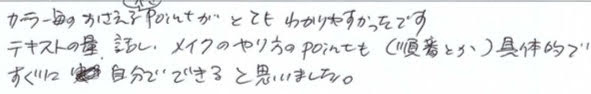 カラー毎のおさえるpointがとてもわかりやすかったです
テキストの量、話し、メイクのやり方のpointも(順番とか)具体的で
すぐに自分でできると思いました。